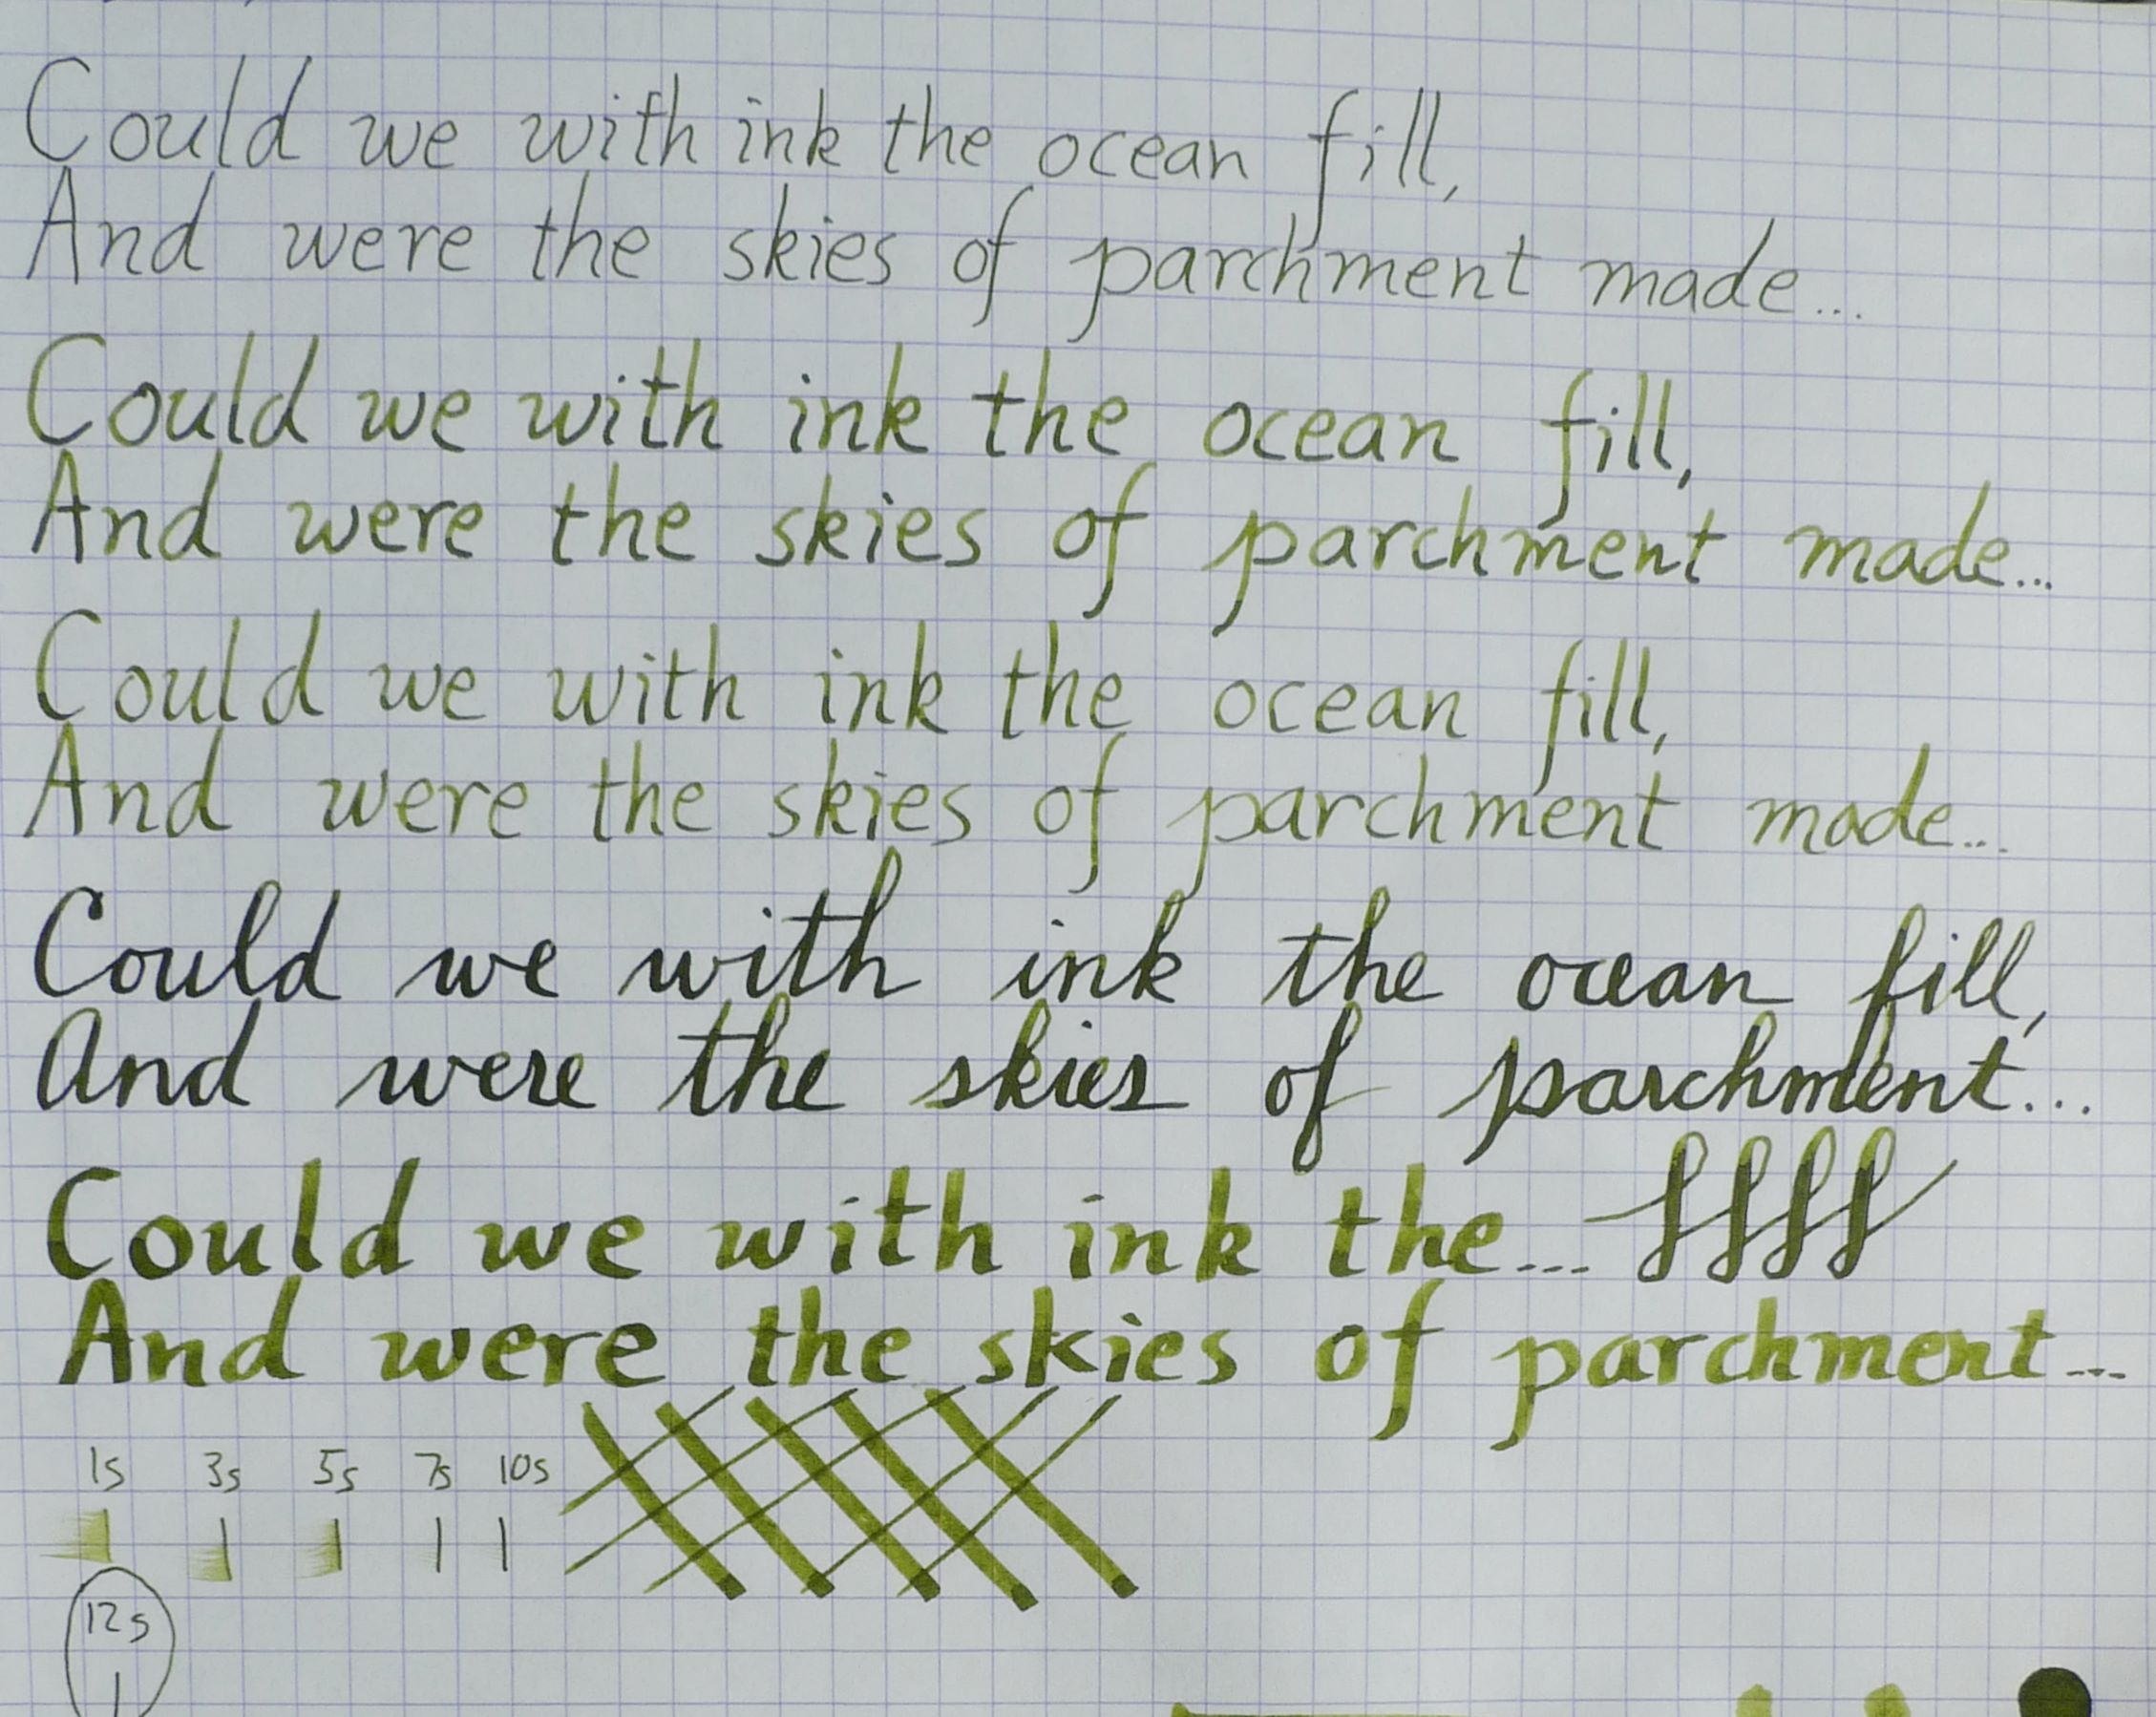 Could we with ink the ocean fill,
And were the skies of parchment made...
Could we with ink the ocean fill,
And were the skies of parchment made...
Could we with ink the ocean fill,
And were the skies of parchment made...
Could we with ink the ocean fill,
And were the skies of parchment...
Could we with ink the...
And were the skies of parchment...
1s 3s 5s 7s 10s
12s